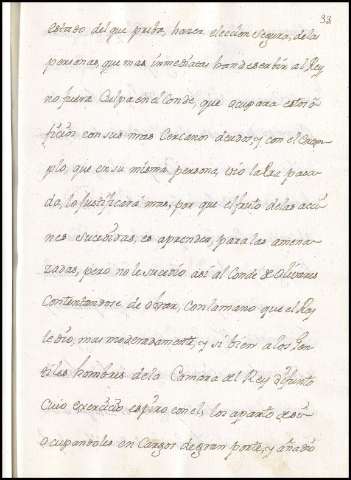 33
estado del que priba, hazer eleccion segura, de las
personas, que mas inmediatas han de servir al Rey
no fuera Culpa en el Conde, que ocupara estos o-
ficios con sus mas Cercanos deudos, y con el Exem-
plo, que en su misma persona, vio la Era pasa-
da, lo justificara mas, por que el fruto de las accio-
nes sucedidas, es aprender, para las amena-
zadas, pero no le sucedio asi al Conde de Olivares
Contentandose de obrar, con la mano que el Rey
le dio, mas moderadamente, y si bien a los Jen-
tiles hombres de la Camara del Rey difunto
Cuio exercicio espiro con el, los aparto de si
Ocupandoles en Cargos de gran porte, y añadio